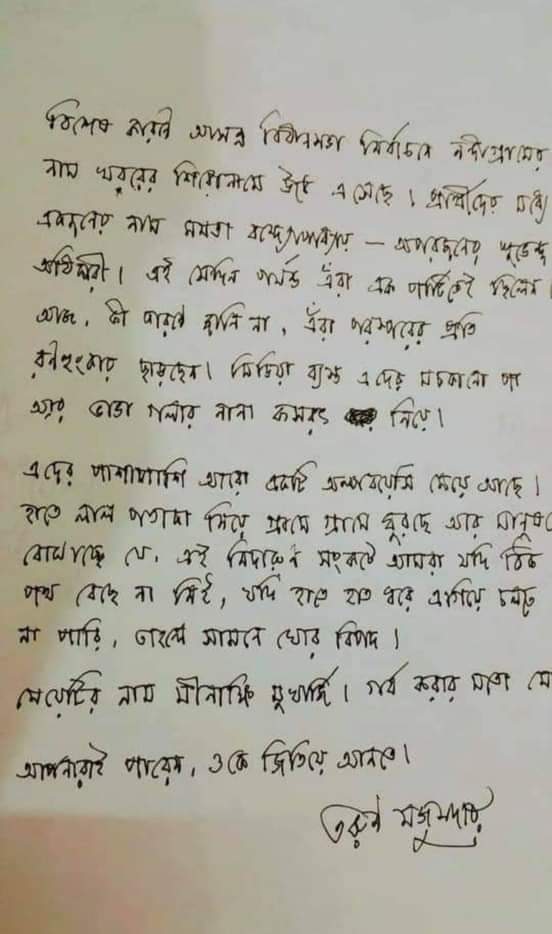 বিশেষ কারণে আসন্ন বিধানসভা নির্বাচনে নন্দীগ্রামের
নাম খবরের শিরোনামে উঠে এসেছে। প্রার্থীদের মধ্যে
একজনের নাম মমতা বন্দ্যোপাধ্যায় — অপরজনের শুভেন্দু
অধিকারী। এই সেদিন পর্যন্ত এঁরা এক পার্টিতেই ছিলেন।
আজ, কী কারণে জানি না, এঁরা পরস্পরের প্রতি
রণহুংকার ছাড়ছেন। মিডিয়া ব্যস্ত এদের মচকানো পা
আর ভাঙা গলার নানা কসরৎ নিয়ে।
এদের পাশাপাশি আরো একটি অল্পবয়েসি মেয়ে আছে।
হাতে লাল পতাকা নিয়ে গ্রামে গ্রামে ঘুরছে আর মানুষকে
বোঝাচ্ছে যে, এই নিদারুণ সংকটে আমরা যদি ঠিক
পথ বেছে না নিই, যদি হাতে হাত ধরে এগিয়ে চলতে
না পারি, তাহলে সামনে ঘোর বিপদ।
মেয়েটির নাম মীনাক্ষি মুখার্জি। গর্ব করার মতো মে
আপনারাই পারেন, ওকে জিতিয়ে আনতে।
তরুণ মজুমদার